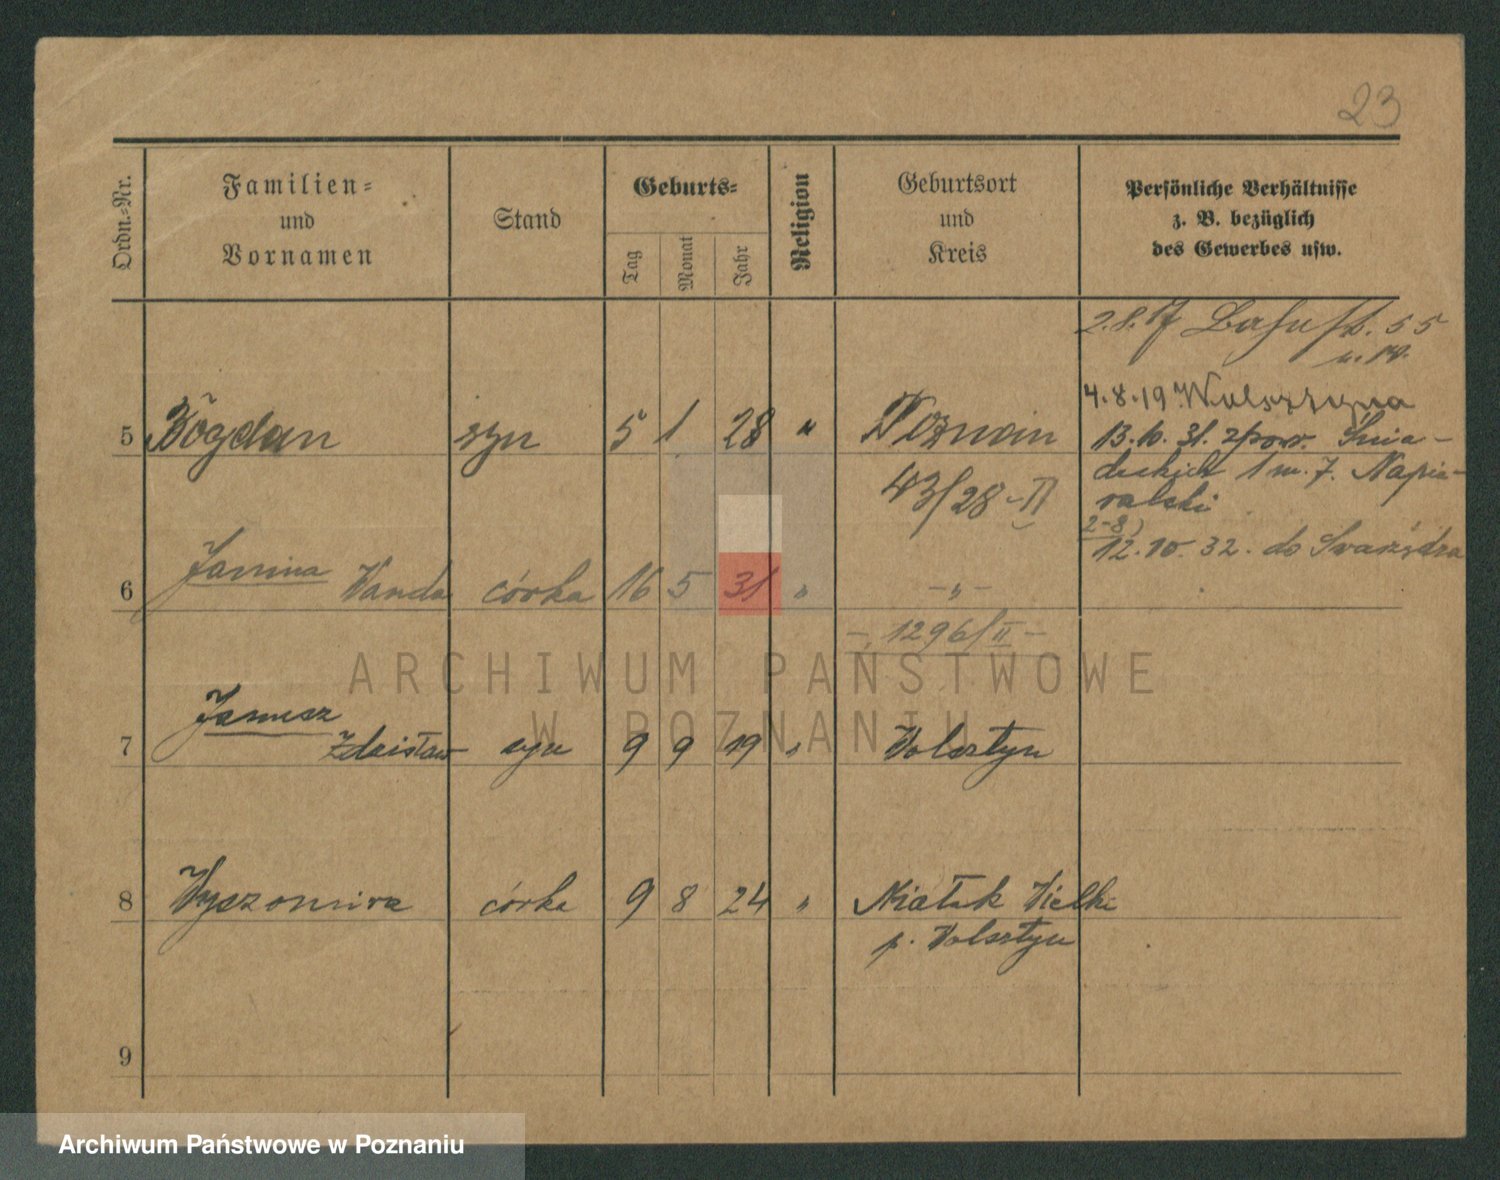 23
Ordn.-Nr.
Familien-
und
Vornamen
Stand
Geburts-
Tag
Monat
Jahr
Religion
Geburtsort
und
Kreis
Persönliche Verhältnisse
z. B. bezüglich
des Gewerbes usw.
2.8.17 55
4.8.19 Wolsztyna
5 Bogdan syn 5 1 28 " Poznań
13.10.31. zpow. Śnia-
deckich 1 m. 7. Napie-
ralski
43/28-II
2-8)
12.10.32. do Swarzędza
6 Janina Wanda córka 16 5 31 " -"-
- 1296/II -
ARCHIWUM PAŃSTWOWE
W POZNANIU
7 Janusz
Zdzisław syn 9 9 19 " Wolsztyn
8 Wyszomira córka 9 8 24 " Wielki
p. Wolsztyn
9
Archiwum Państwowe w Poznaniu